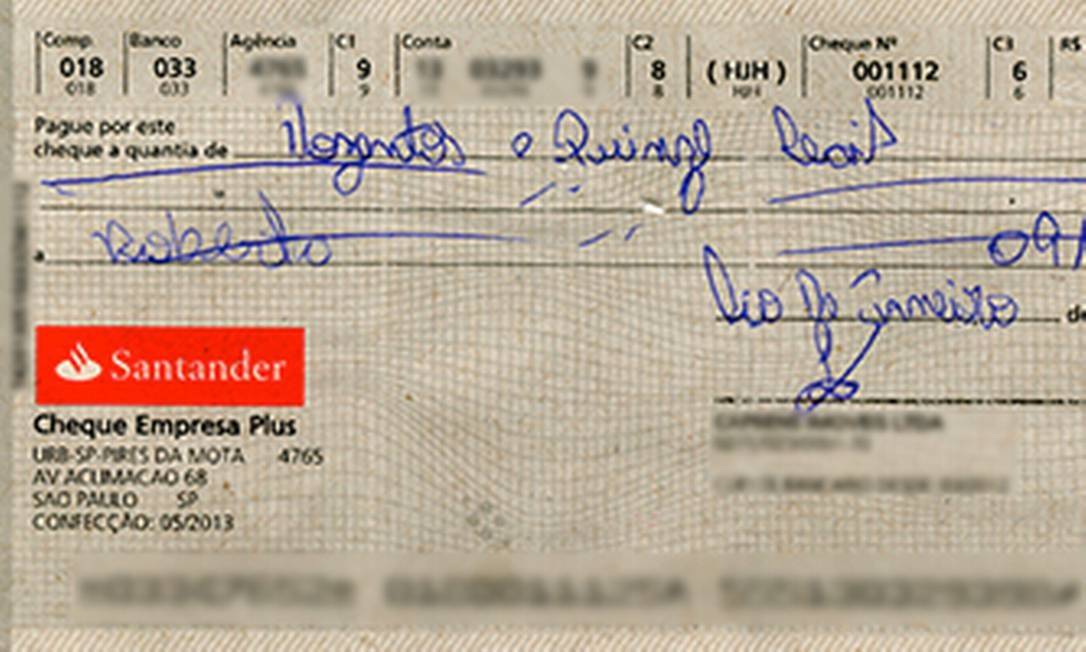 Comp. Banco Agência C1 Conta C2 Cheque Nº C3 R$
018 033 9 8 ( HJH ) 001112 6
018 033 9 8 HJH 001112 6
Pague por este
cheque a quantia de e Quinze Reais
a Roberto 09/
Rio de Janeiro de
Santander
Cheque Empresa Plus
URB-SP-PIRES DA MOTA 4765
AV ACLIMACAO 68
SAO PAULO SP
CONFECÇÃO: 05/2013